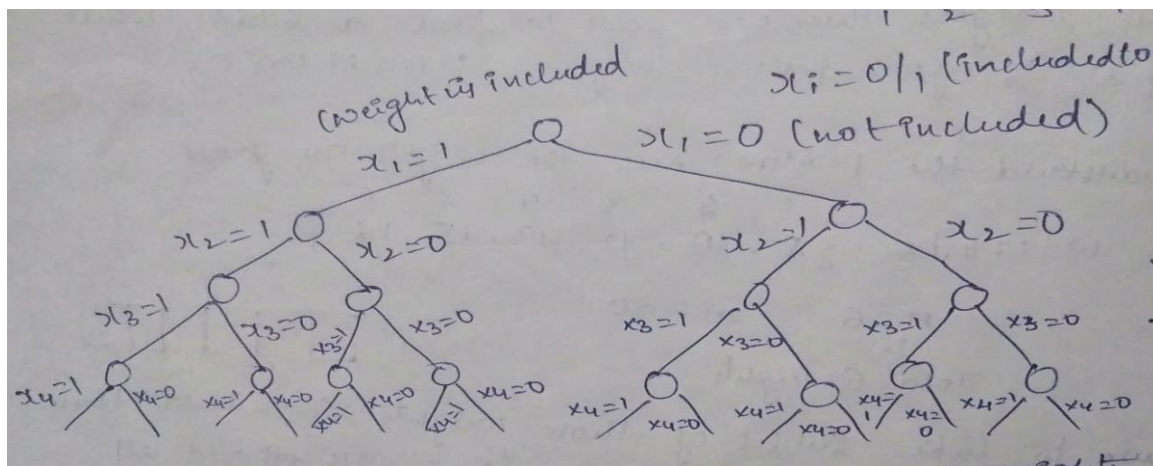 1 2 3
xᵢ = 0/1 (included to
(weight is included
x₁=1
x₁=0 (not included)
x₂=1 x₂=0 x₂=1 x₂=0
x₃=1 x₃=0 x₃=1 x₃=0 x₃=1 x₃=0 x₃=1 x₃=0
x₄=1 x₄=0 x₄=1 x₄=0 x₄=1 x₄=0 x₄=1 x₄=0 x₄=1 x₄=0 x₄=1 x₄=0 x₄=1 x₄=0 x₄=1 x₄=0